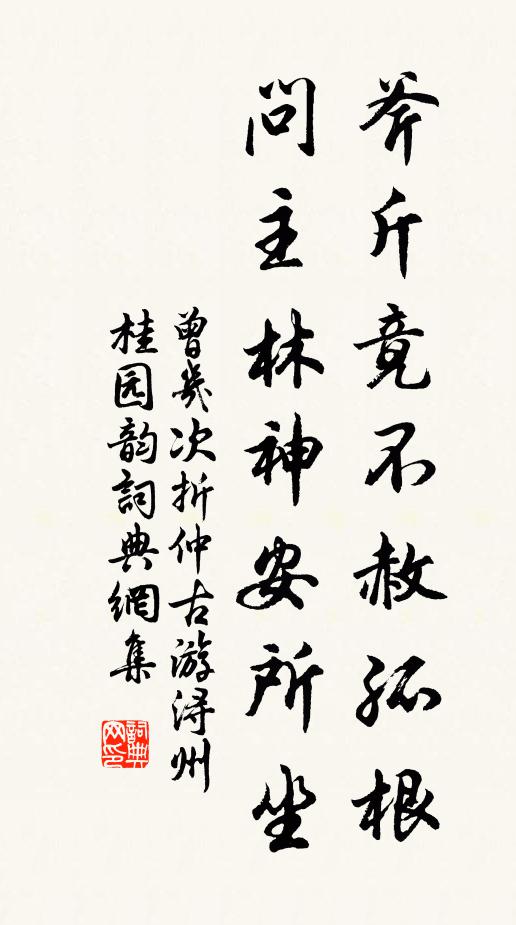 斧斤竟不赦孤根
問主林神安所坐
曾幾次折仲古游浔州
桂园韵詞典網集
詞典
网印